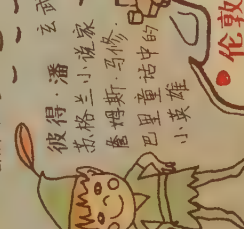 玄武
彼得·潘
苏格兰小说家
詹姆斯·马修·
巴里童话中的
小英雄
伦敦